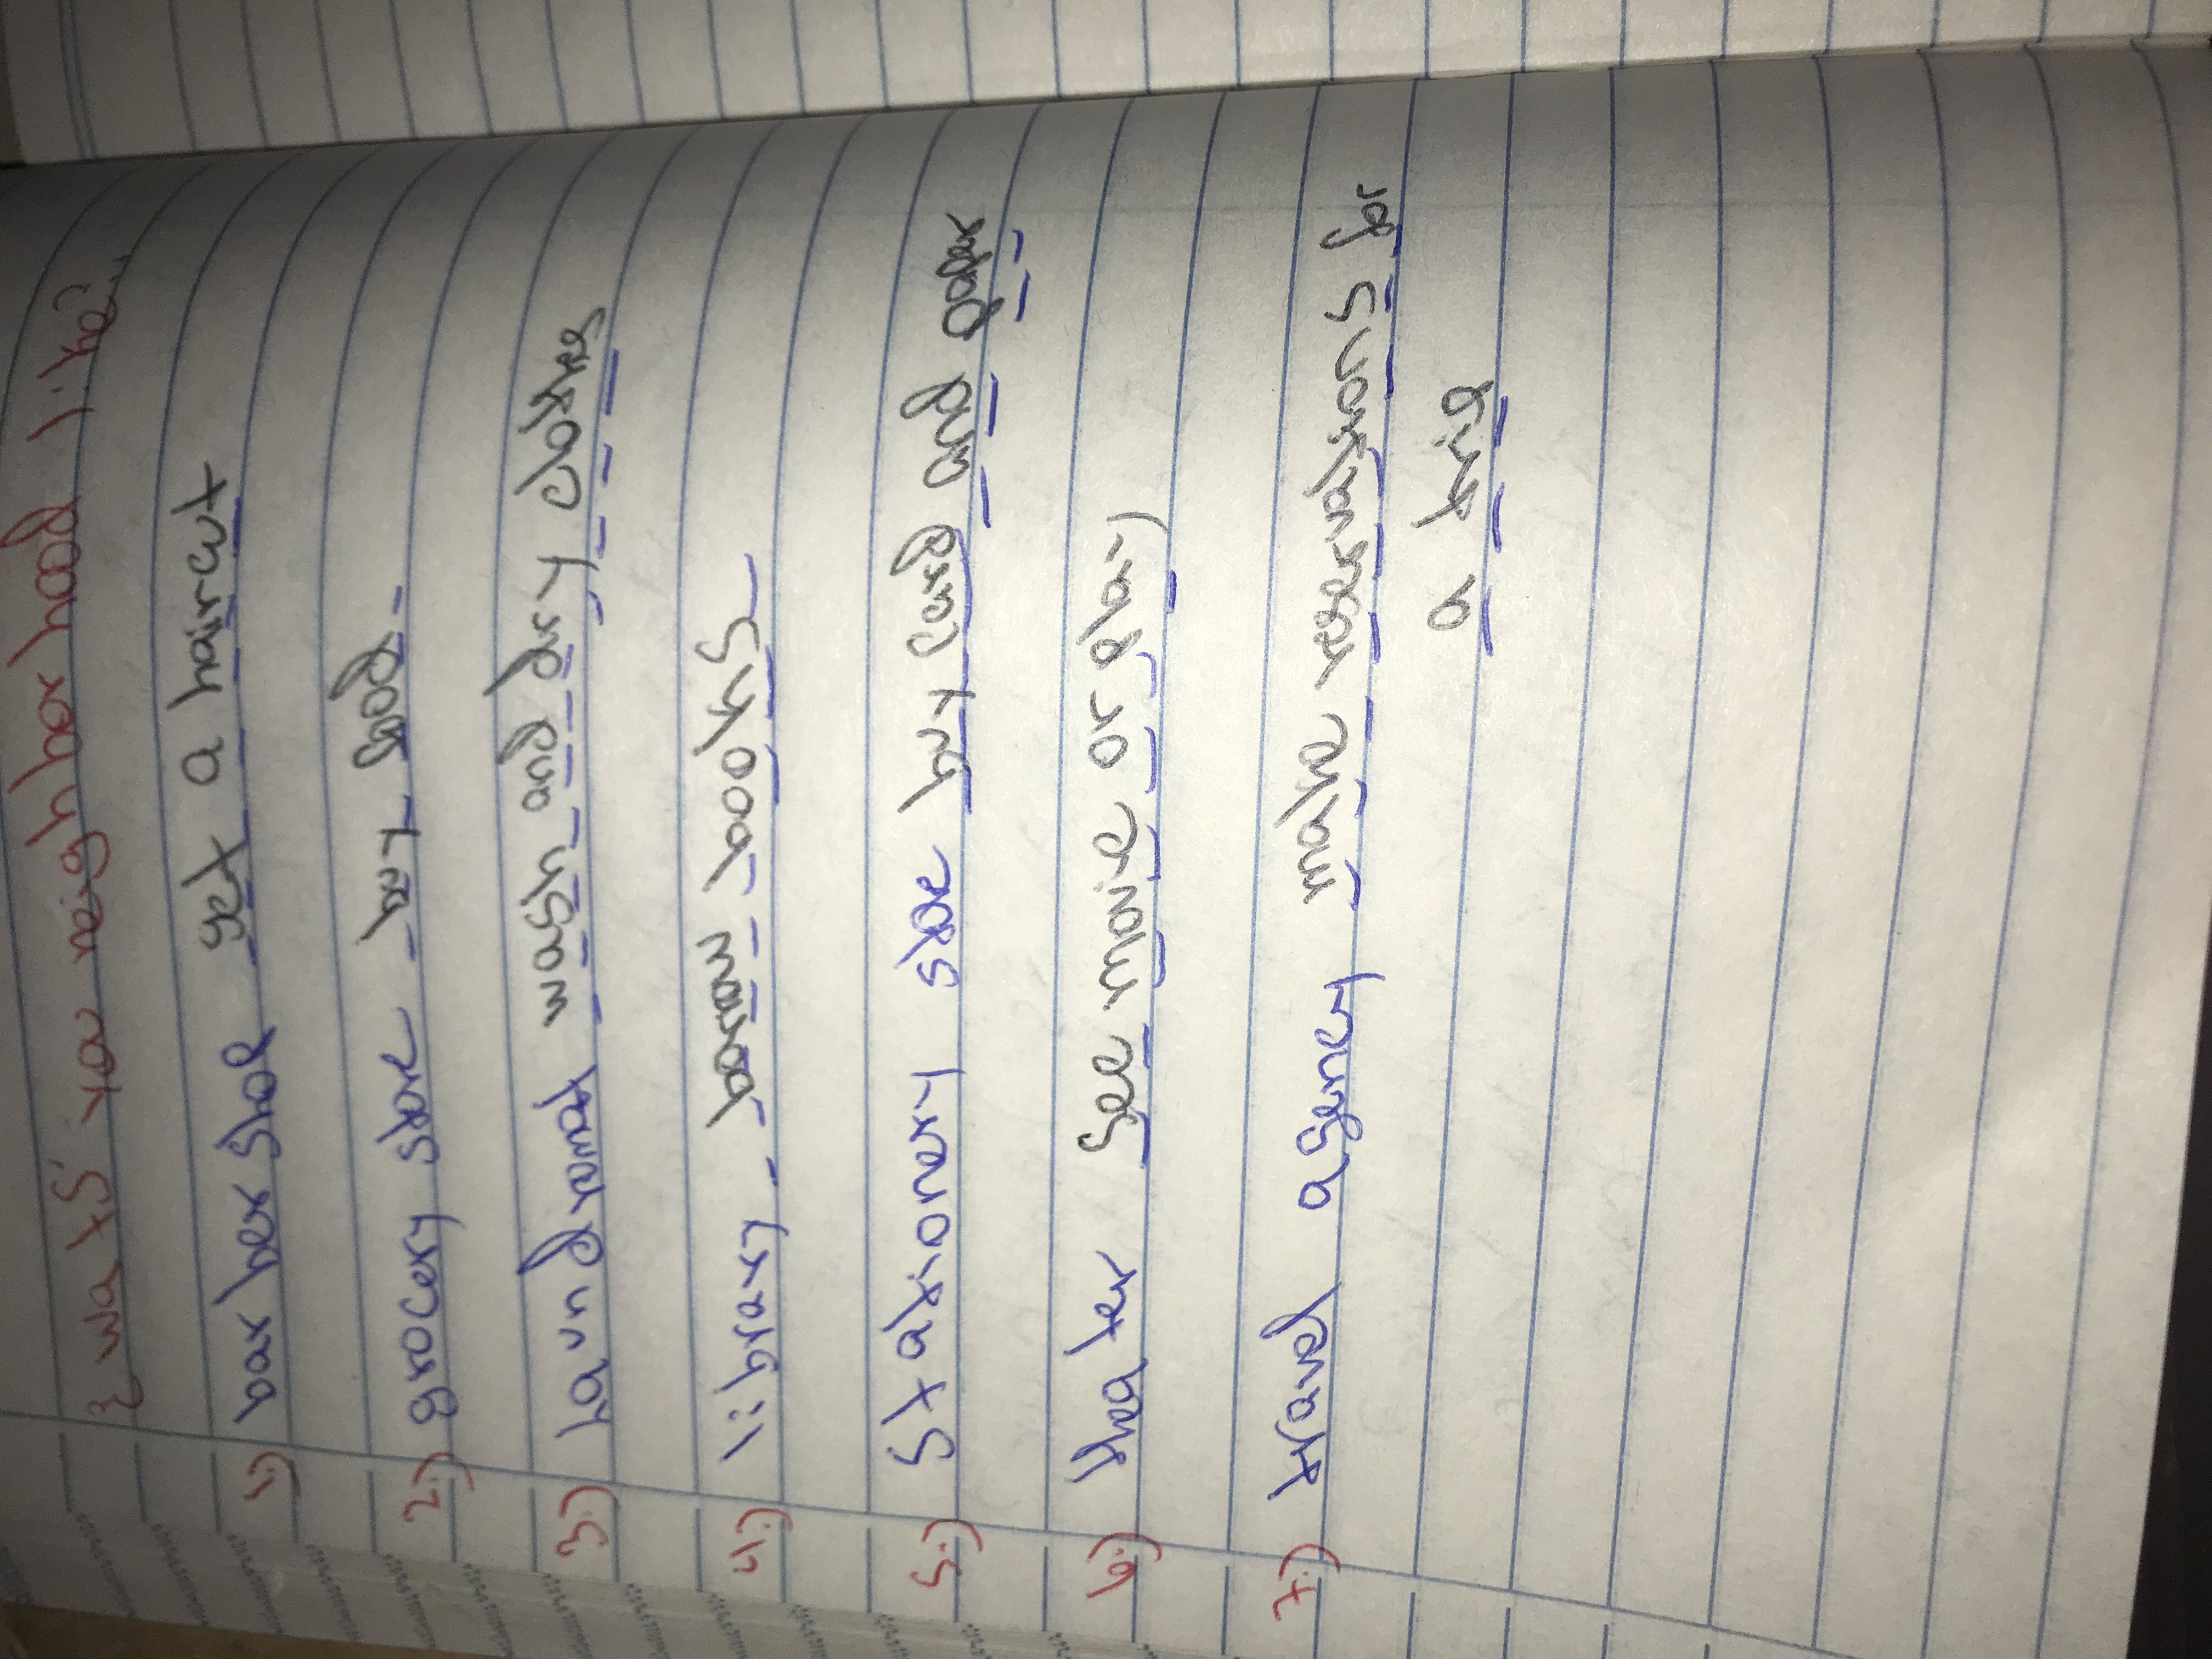 { wats you neighborhood like?
1.) barber shop get a haircut
2.) grocery store buy food
3.) laundromat wash and dry clothes
4.) library borrow books
5.) stationery stoe buy card and paper
6.) theater see movie or play
7.) travel agency make reservations for
a trip